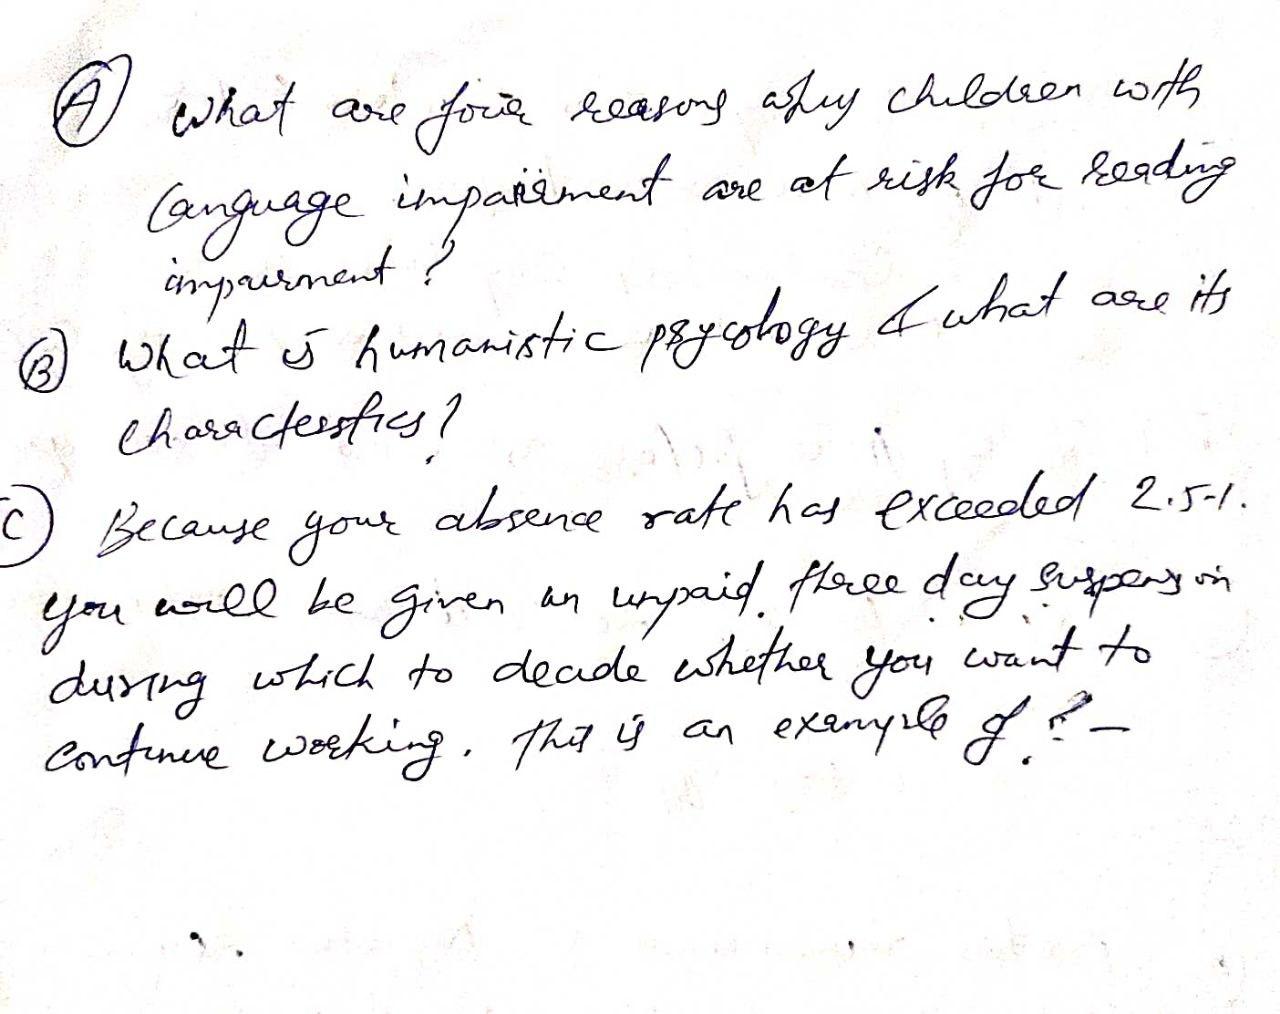 A What are four reasons why children with
Language impairment are at risk for reading
impairment?
B What is humanistic psycology & what are its
characterstics?
C Because your absence rate has exceeded 2.5%.
you will be given an unpaid three day suspension
during which to decide whether you want to
continue working. This is an example of ? -